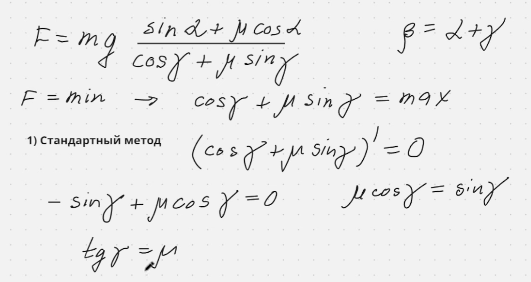 F = mg (sin α + μ cos α)/(cos γ + μ sin γ) β = α + γ
F = min → cos γ + μ sin γ = max
1) Стандартный метод (cos γ + μ sin γ)' = 0
- sin γ + μ cos γ = 0 μ cos γ = sin γ
tg γ = μ